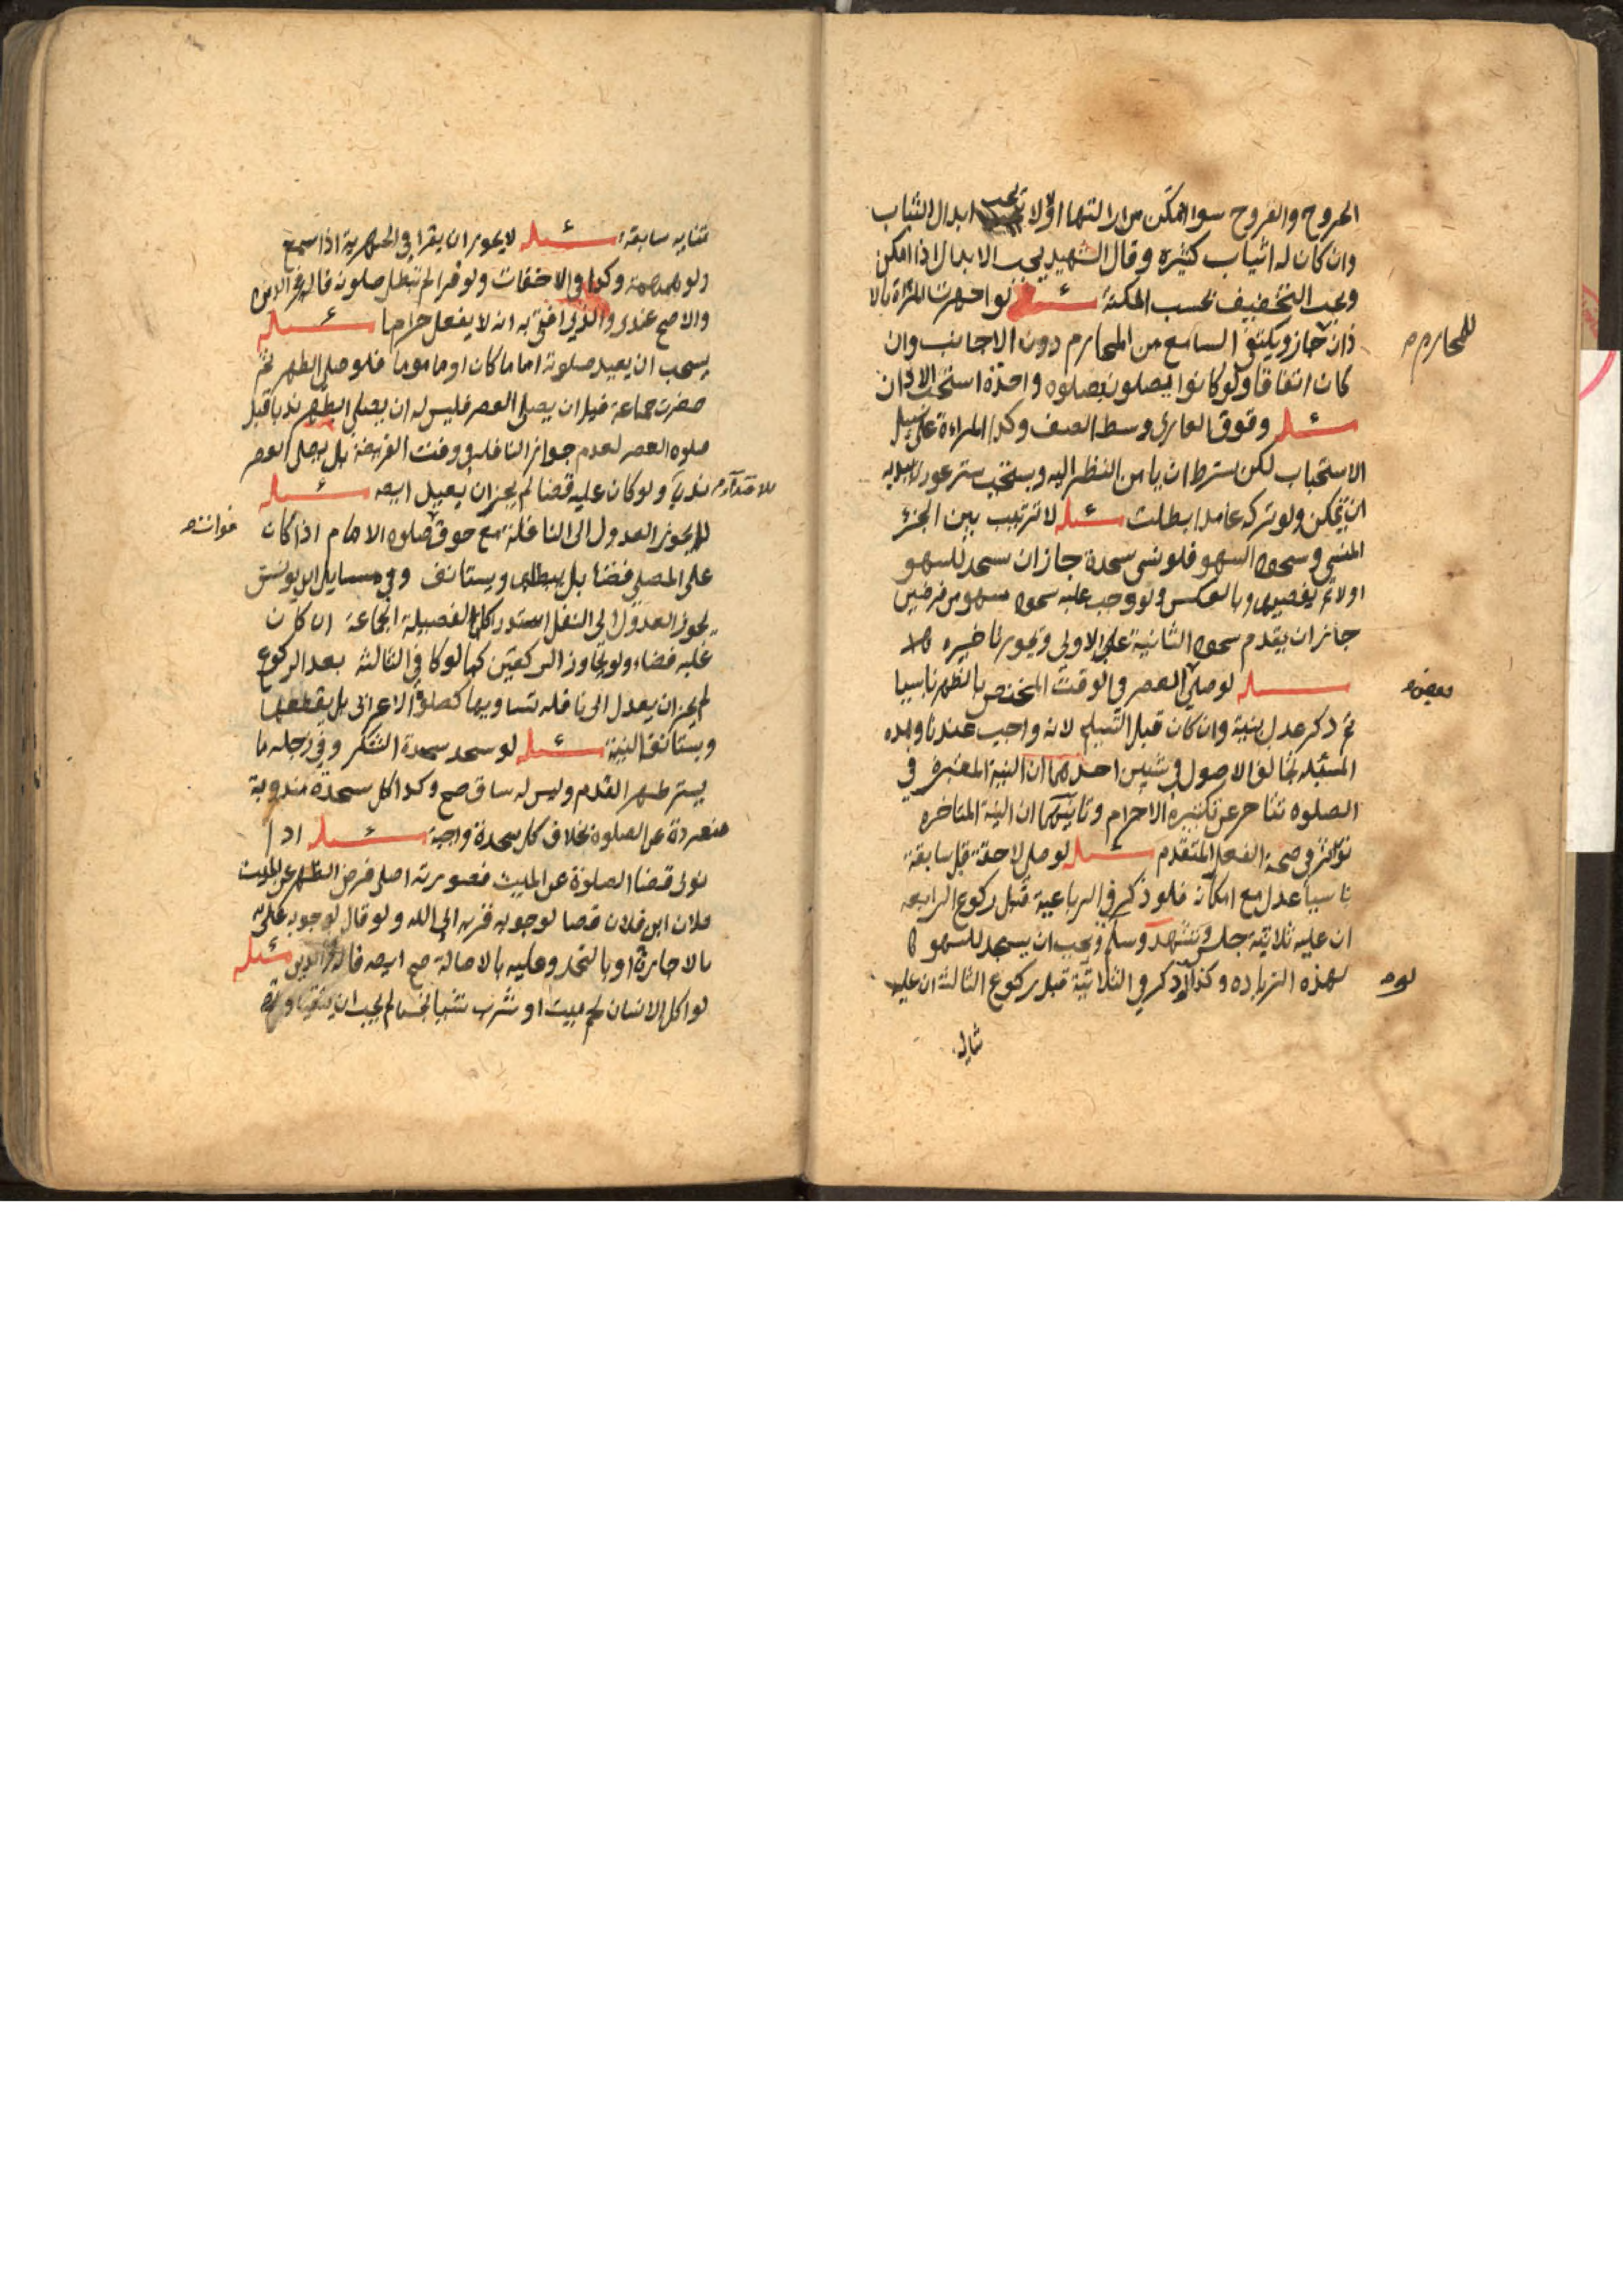 الجروح والقروح سوا تمكن من ازالتها اولا يجب ابدال الثياب
وان كان له اثياب كثيره وقال الشهيد يجب الابدال اذا امكن
ويجب التخفيف بحسب المكنة مسئله لو اجهرت المراة بالا
ذان جاز ويكتفى السامع من المحارم دون الاجانب وان
للمحارم م
كان اتفاقا ولو كانوا يصلون بصلوه واحدة استحب الاذان
مسئله وقوف العاري وسط الصف وكذا المراءة على سبيل
الاستحباب لكن بشرط ان يامن النظر اليه ويستحب ستر عورته بيديه
ان تمكن ولو تركه عامدا بطلت مسئله لا ترتيب بين الجزء
المنسي وسجود السهو فلو نسى سجدة جاز ان يسجد للسهو
اولا ثم يقضيها وبالعكس ولو وجب عليه سجود سهو من فرضين
جاز ان يقدم سجود الثانية على الاولى ويجوز تاخيره
مسئله لو صلى العصر في الوقت المختص بالظهر ناسيا
ثم ذكر عدل بنية وان كان قبل التسليم لانه واجب عندنا وهذه
المسئله تخالف الاصول في شيين احدهما ان النية المعتبره في
الصلوه تتاخر عن تكبيره الاحرام وثانيهما ان النية المتاخره
تؤثر في صحة الفعل المتقدم مسئله لو صلى لاحقة قبل سابقة
ناسيا عدل مع امكانه فلو ذكر في الرباعية قبل ركوع الرابعه
ان عليه ثلاثية جلس وتشهد وسلم ويجب ان يسجد للسهو
لهذه الزياده وكذا لو ذكر في الثلاثية قبل ركوع الثالثة ان عليه
لو م
ثنايه
ثنايه سابقة مسئله لا يجوز ان يقرا في الجهرية اذا سمع
ولو همهمة وكذا في الاخفات ولو قرا لم تبطل صلوته قاله فخر الدين
والاصح عندي والذي افتى به انه لا يفعل حراما مسئله
يستحب ان يعيد صلوته اماما كان او ماموما فلو صلى الظهر ثم
حضرت جماعة قبل ان يصلي العصر فليس له ان يصلي الظهر ندبا قبل
صلوه العصر لعدم جواز النافله في وقت الفريضة بل يصلى العصر
ندبا ولو كان عليه قضا لم يجز ان يعيل ايضه مسئله
لا يجوز العدول الى النافلة مع خوف صلوه الامام اذا كان
على المصلي قضا بل يبطلها ويستانف وفي مسايل ابن يونس
يجوز العدول الى النفل استدراكا لفضيلة الجماعة ان كان
عليه قضاء ولو تجاوز الركعتين كما لو كا في الثالثه بعد الركوع
لم يجز ان يعدل الى نافله تساويها كصلوة الاعرابي بل يقطعها
ويستانف النية مسئله لو سجد سجدة الشكر وفي رجله ما
يستر ظهر القدم وليس له ساق صح وكذا كل سجدة مندوبة
منفردة عن الصلوة بخلاف كل سجدة واجبة مسئله اذا
نوى قضا الصلوة عن الميت فصورته اصلي فرض الظهر عن الميت
فلان ابن فلان قضا لوجوبه قربه الى الله ولو قال لوجوبه عليّ
بالاجارة او بالتحمل وعليه بالاصالة صح ايضه قاله فخر الدين مسئله
لو اكل الانسان لحم ميت او شرب شيا نجسا لم يجب ان يتقيا